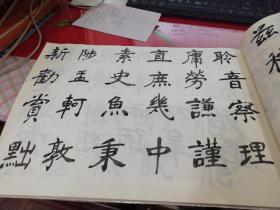 新勸賞黜
陟孟軻敦
素史魚秉
直庶幾中
庸勞謙謹
聆音察理
茲